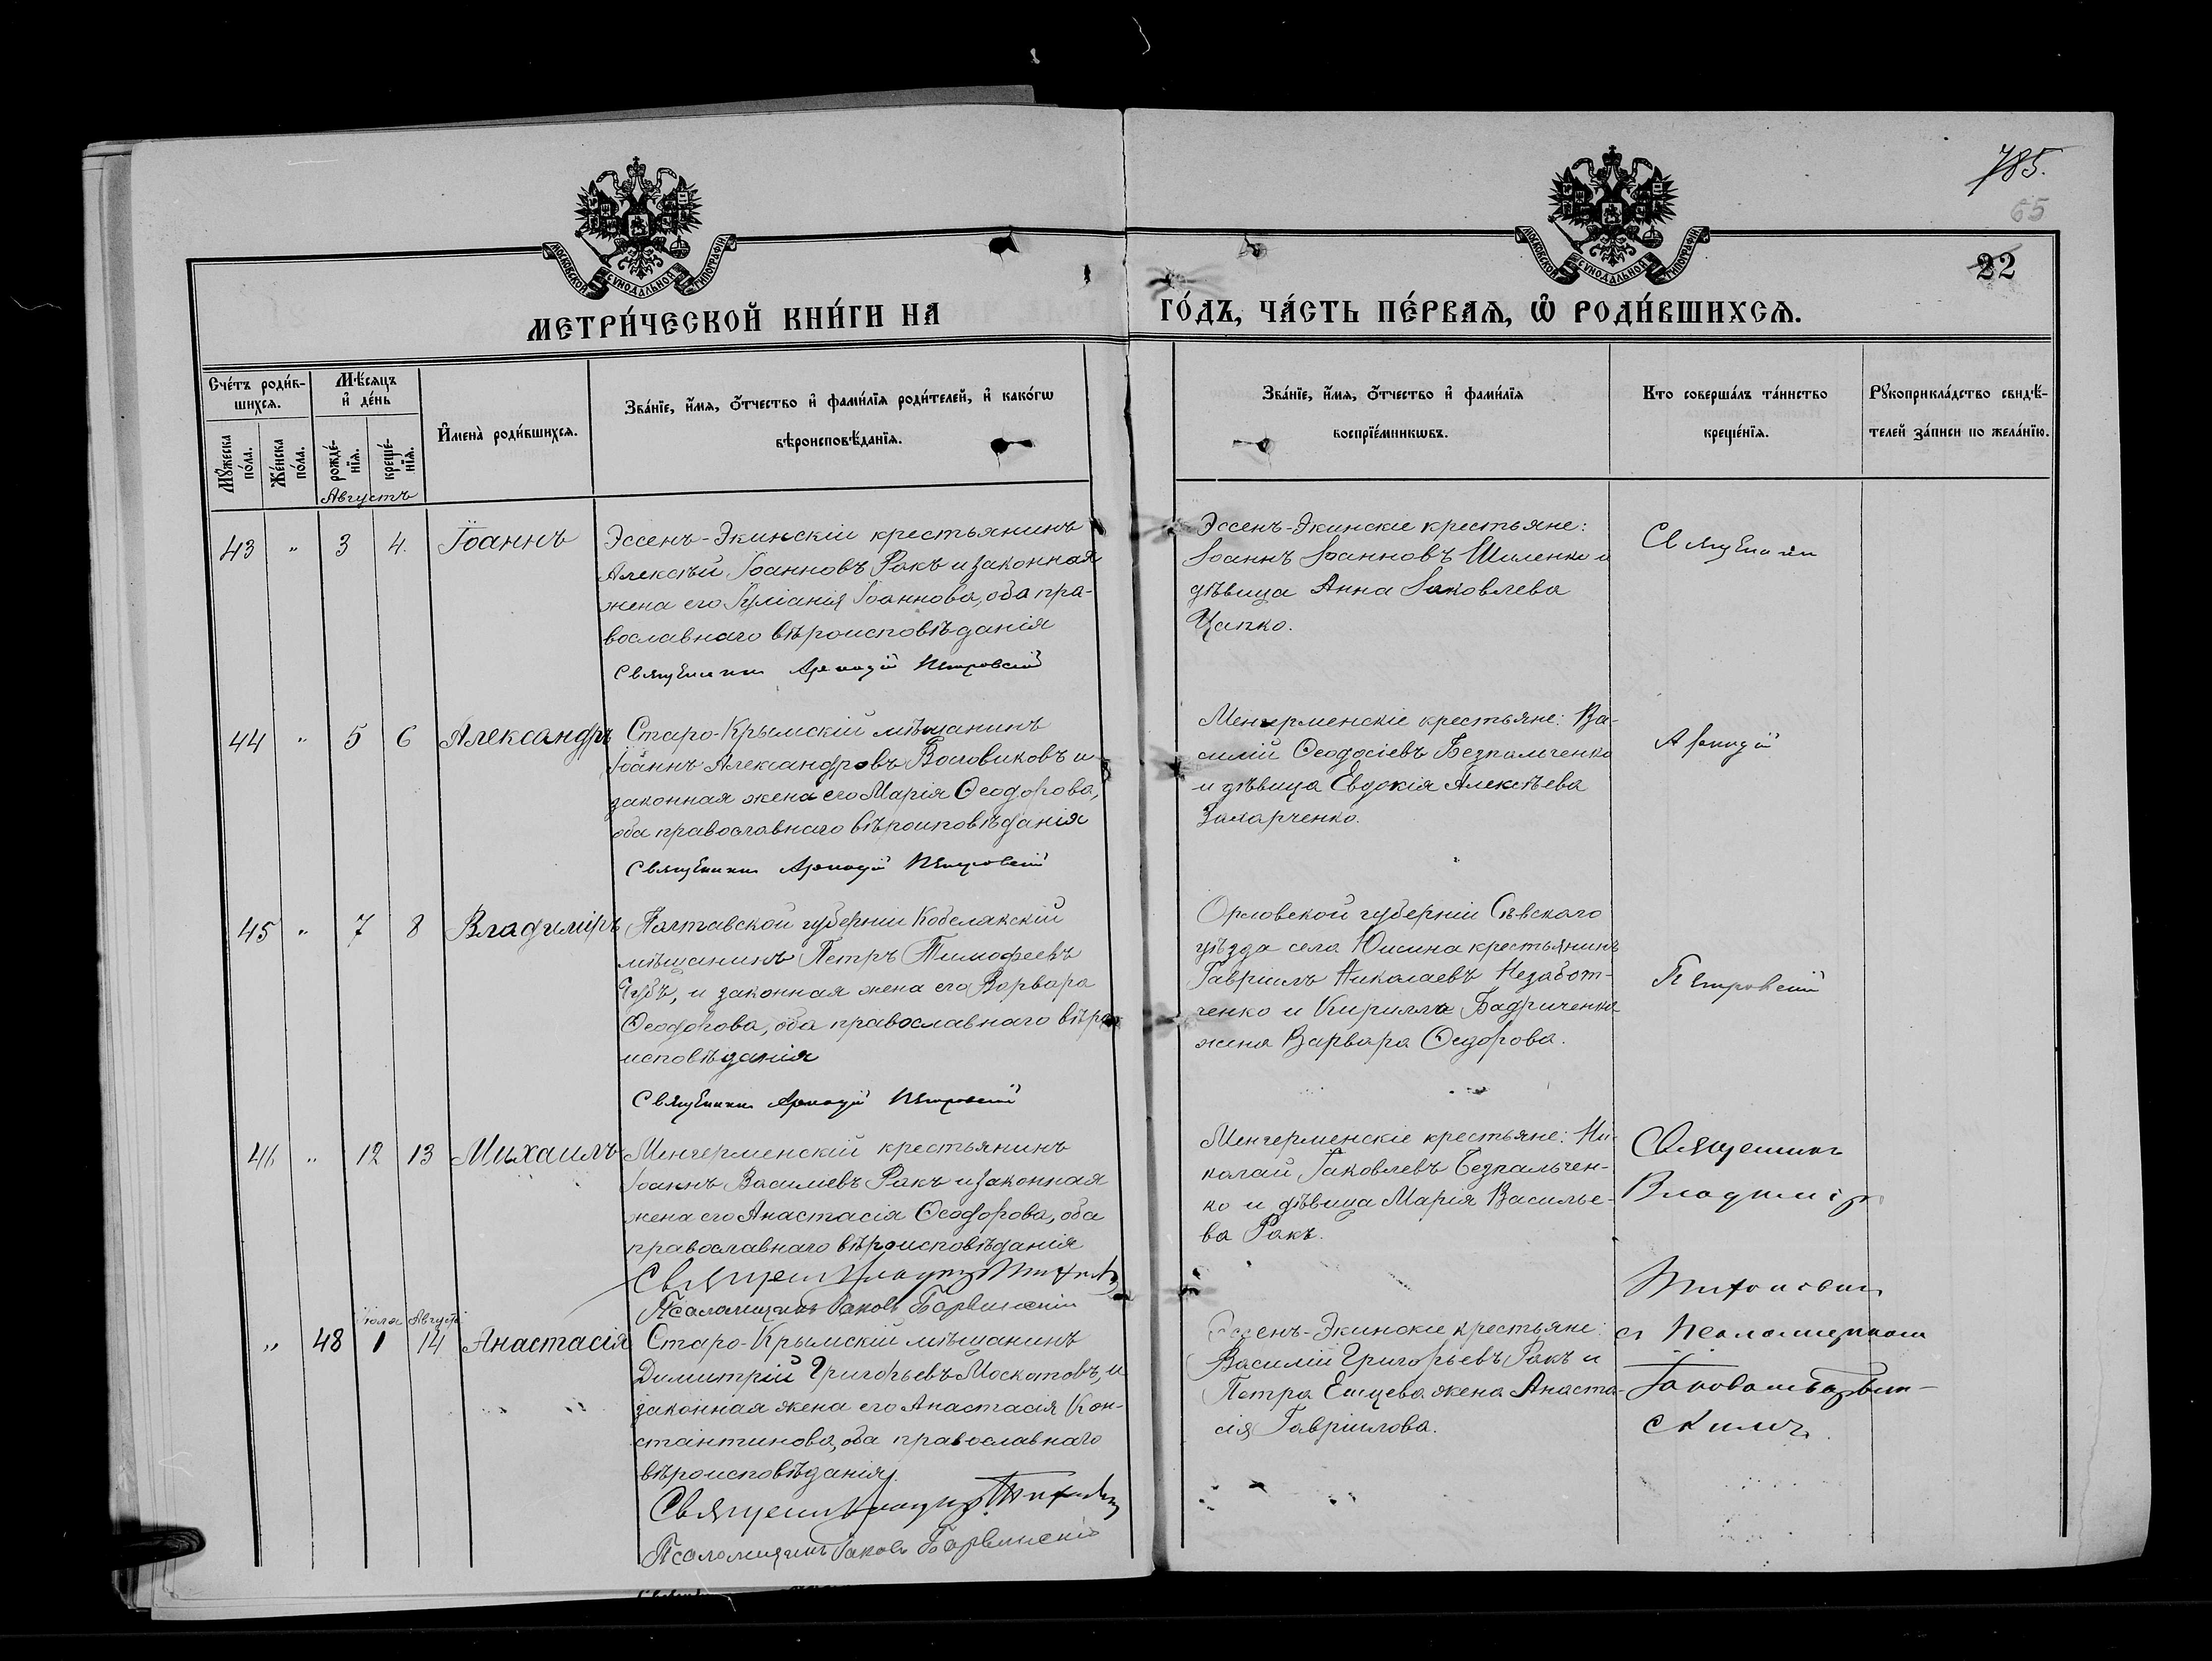 785.
65
22
МОСКОВСКОЙ СѴНОДАЛЬНОЙ ТИПОГРАФІИ
МОСКОВСКОЙ СѴНОДАЛЬНОЙ ТИПОГРАФІИ
МЕТРИ́ЧЕСКОЙ КНИ́ГИ НА ГО́ДЪ, ЧА́СТЬ ПЕ́РВАѦ, Ѽ РОДИ́ВШИХСѦ.
Сче́тъ роди́в-
шихсѧ.
Мѣ́сѧцъ
и҆ де́нь
Мꙋ́жеска по́ла.
Же́нска по́ла.
рожде́-
нїѧ.
креще́-
нїѧ.
И҆мена̀ роди́вшихсѧ.
Зва́нїе, и҆́мѧ, ѻ҆́тчество и҆ фами́лїѧ роди́телей, и҆ како́гѡ
вѣроисповѣ́данїѧ.
Зва́нїе, и҆́мѧ, ѻ҆́тчество и҆ фами́лїѧ
воспрїе́мникѡвъ.
Кто соверша́лъ та́инство
креще́нїѧ.
Рꙋкоприкла́дство свидѣ́-
телей за́писи по жела́нїю.
Августъ
43 " 3 4. Іоаннъ
Эссенъ-Экинскій крестьянинъ
Алексѣй Іоанновъ Ракъ и законная
жена его Іуліанія Іоаннова, оба пра-
вославнаго вѣроисповѣданія
Священникъ Аркадій Петровскій
Эссенъ-Экинскіе крестьяне:
Іоаннъ Іоанновъ Шиленко и
дѣвица Анна Іаковлева
Цапко.
Священникъ
44 " 5 6 Александръ
Старо-Крымскій мѣщанинъ
Іоаннъ Александровъ Восовиковъ и
законная жена его Марія Ѳеодорова,
оба православнаго вѣроисповѣданія
Священникъ Аркадій Петровскій
Менгерменскіе крестьяне: Ва-
силій Ѳеодосіевъ Безпальченко
и дѣвица Евдокія Алексѣева
Захарченко.
Аркадій
45 " 7 8 Владиміръ
Полтавской губерніи Кобелякскій
мѣщанинъ Петръ Тимофеевъ
Чубъ, и законная жена его Варвара
Ѳеодорова, оба православнаго вѣро-
исповѣданія
Священникъ Аркадій Петровскій
Орловской губерніи Сѣвскаго
уѣзда села Юшина крестьянинъ
Гавріилъ Николаевъ Незабот-
ченко и Кирилла Бадриченко
жена Варвара Ѳедорова.
Петровскій
46 " 12 13 Михаилъ
Менгерменскій крестьянинъ
Іоаннъ Василіевъ Ракъ и законная
жена его Анастасія Ѳеодорова, оба
православнаго вѣроисповѣданія
Священ Владиміръ
Псаломщикъ Іаковъ Барвинскій
Менгерменскіе крестьяне: Ни-
колай Іаковлевъ Безпальчен-
ко и дѣвица Марія Василье-
ва Ракъ.
Священникъ
Владиміръ
Іюля Августъ
" 48 1 14 Анастасія
Старо-Крымскій мѣщанинъ
Димитрій Григорьевъ Москотовъ, и
законная жена его Анастасія Кон-
стантинова, оба православнаго
вѣроисповѣданія.
Священ Владиміръ
Псаломщикъ Іаковъ Барвинскій
Эссенъ-Экинскіе крестьяне:
Василій Григорьевъ Ракъ и
Петра Ещева жена Анаста-
сія Гавріилова.
съ Псаломщикомъ
Іаковомъ Барвин-
скимъ